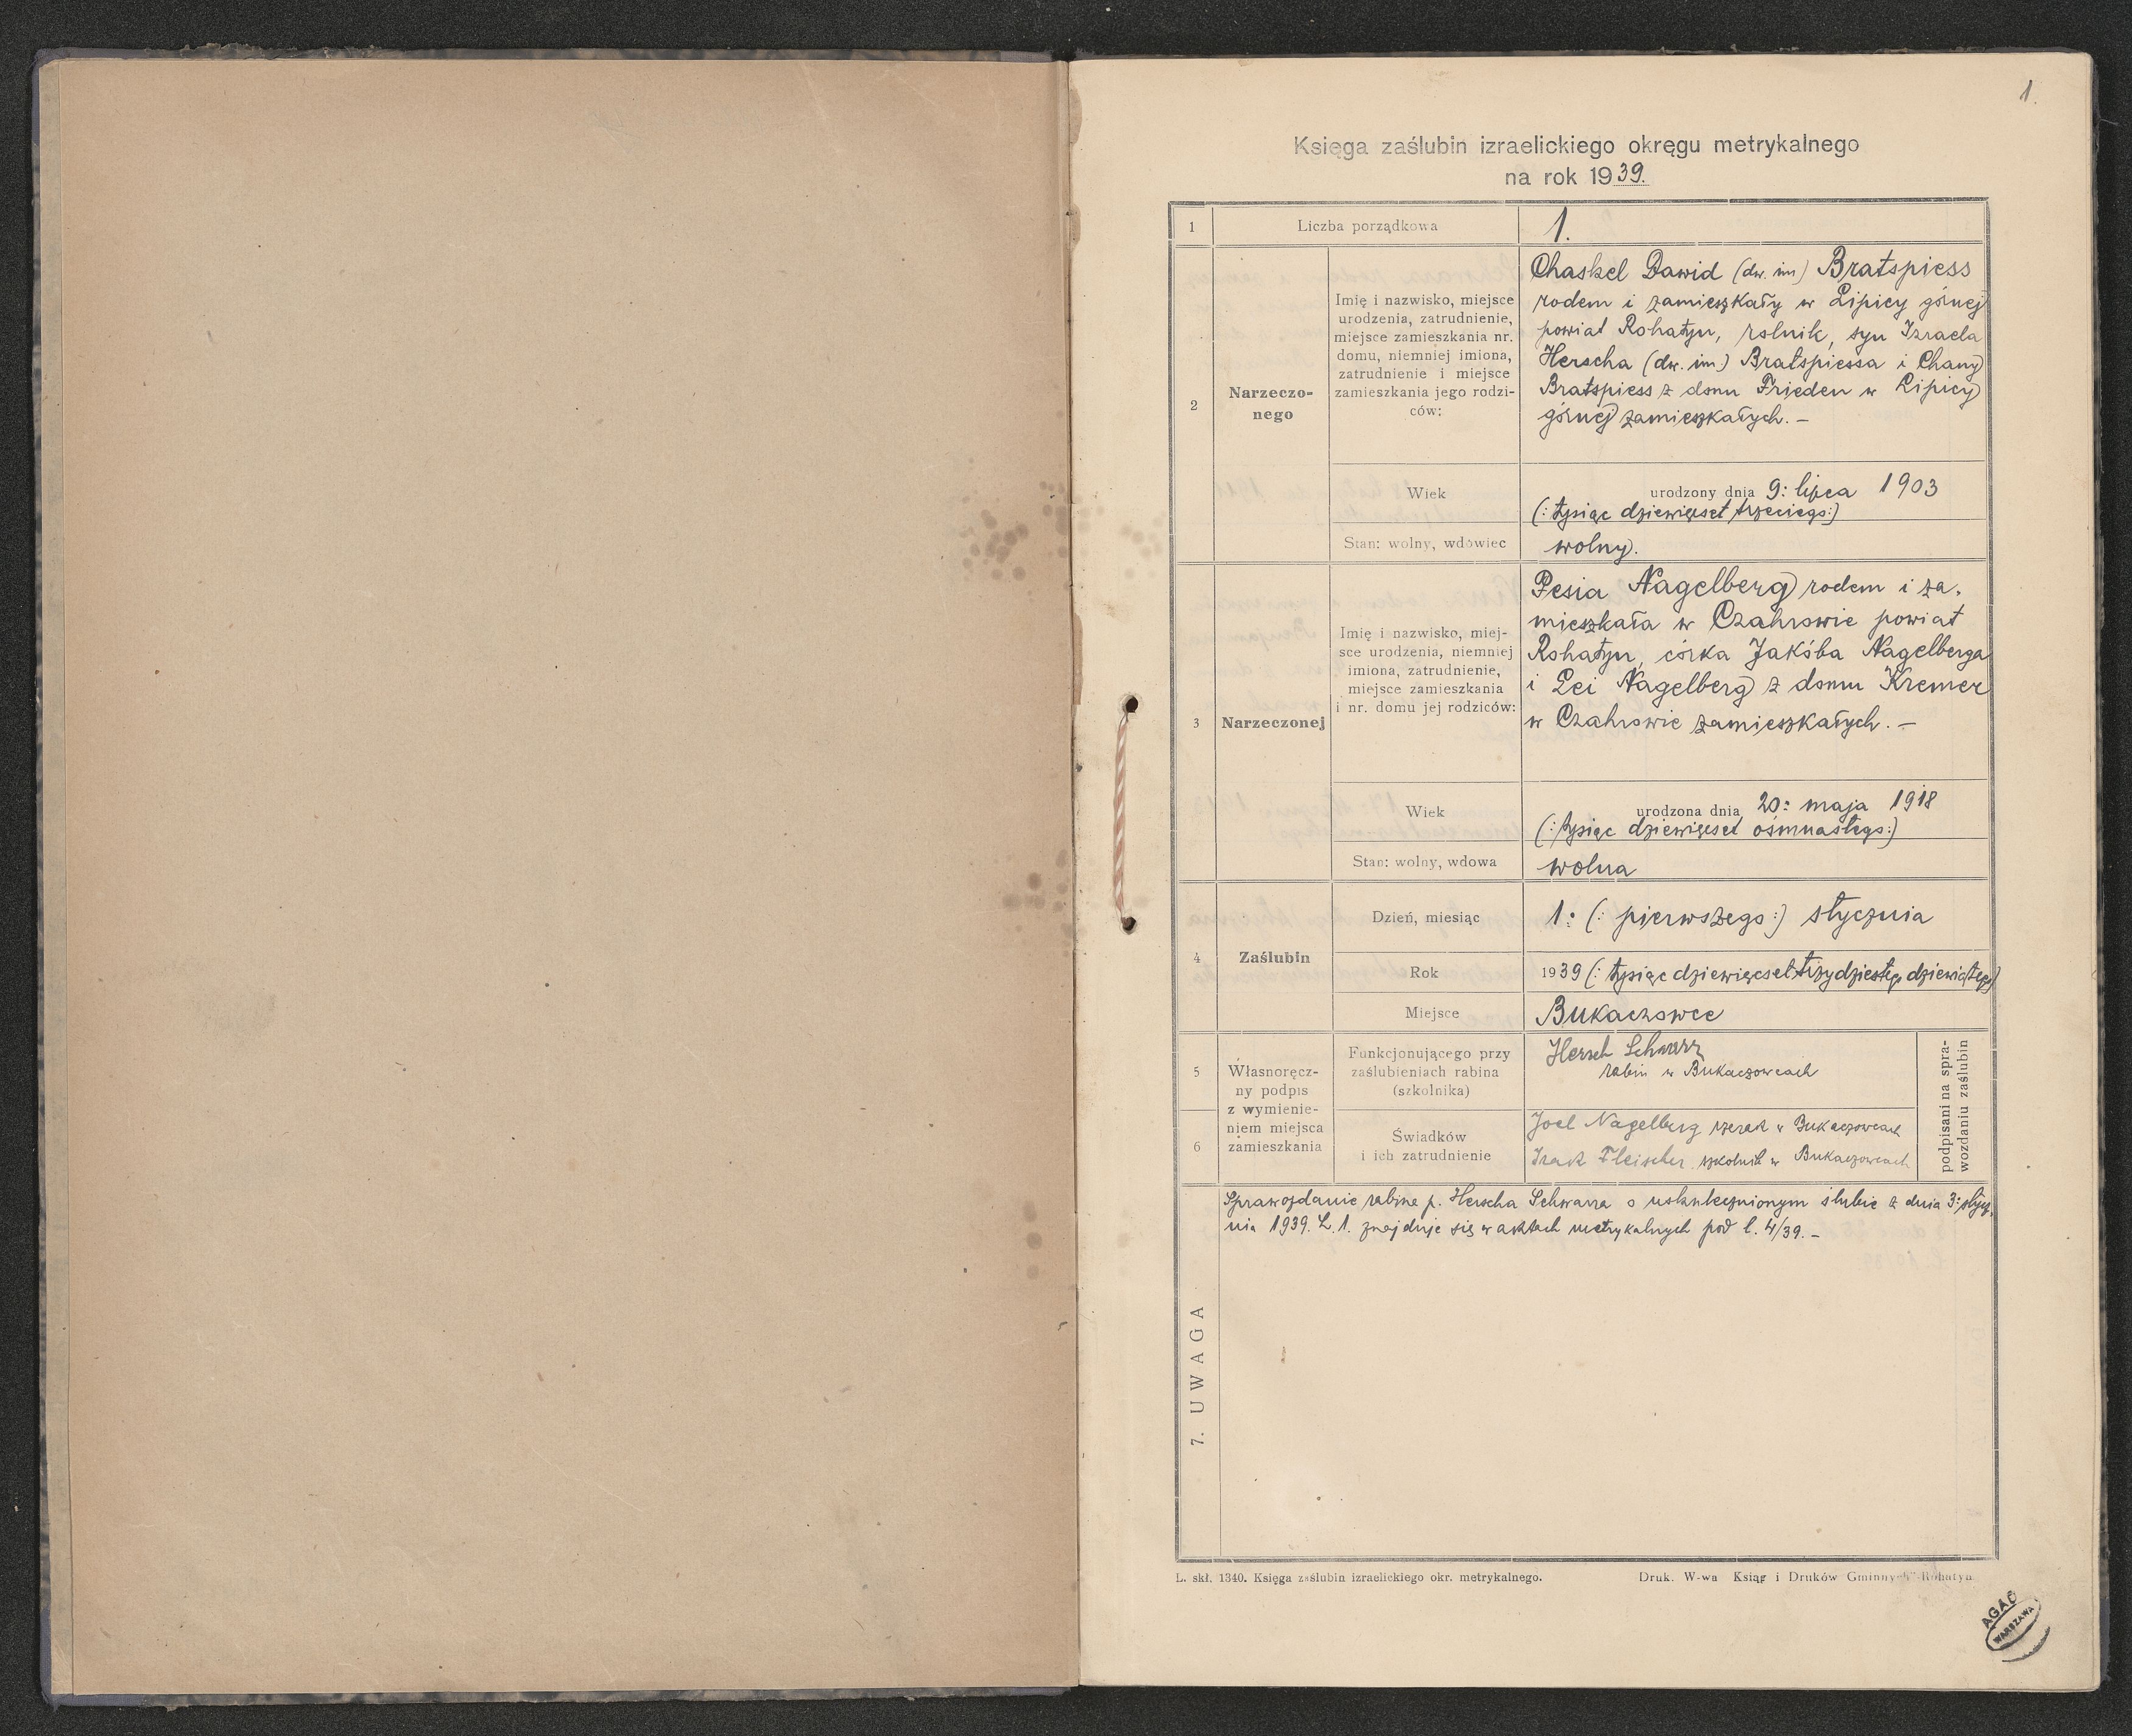 1.
Księga zaślubin izraelickiego okręgu metrykalnego
na rok 1939.
1
Liczba porządkowa
1.
2
Narzeczo-
nego
Imię i nazwisko, miejsce
urodzenia, zatrudnienie,
miejsce zamieszkania nr.
domu, niemniej imiona,
zatrudnienie i miejsce
zamieszkania jego rodzi-
ców:
Chaskel Dawid (dw. im) Bratspiess
rodem i zamieszkały w Lipicy górnej
powiat Rohatyn, rolnik, syn Izraela
Herscha (dw. im.) Bratspiessa i Chany
Bratspiess z domu Frieden w Lipicy
górnej zamieszkałych. —
Wiek
urodzony dnia 9: lipca 1903
(: tysiąc dziewięćset trzeciego:)
Stan: wolny, wdowiec
wolny.
3
Narzeczonej
Imię i nazwisko, miej-
sce urodzenia, niemniej
imiona, zatrudnienie,
miejsce zamieszkania
i nr. domu jej rodziców:
Pesia Nagelberg rodem i za-
mieszkała w Czahrowie powiat
Rohatyn, córka Jakóba Nagelberga
i Lei Nagelberg z domu Kremer
w Czahrowie zamieszkałych. —
Wiek
urodzona dnia 20: maja 1918
(: tysiąc dziewięćset ośmnastego:)
Stan: wolny, wdowa
wolna
4
Zaślubin
Dzień, miesiąc
1: (: pierwszego:) stycznia
Rok
1939 (: tysiąc dziewięćset trzydziestego dziewiątego)
Miejsce
Bukaczowce
5
6
Własnoręcz-
ny podpis
z wymienie-
niem miejsca
zamieszkania
Funkcjonującego przy
zaślubieniach rabina
(szkolnika)
Hersch Schwarz
rabin w Bukaczowcach
Świadków
i ich zatrudnienie
Joel Nagelberg rzezak w Bukaczowcach
Izak Fleischer szkolnik w Bukaczowcach
podpisani na spra-
wozdaniu zaślubin
7. UWAGA
Sprawozdanie rabina p. Herscha Schwarza o uskutecznionym ślubie z dnia 3: stycz-
nia 1939. L. 1. znajduje się w aktach metrykalnych pod l. 4/39. —
L. skł. 1340. Księga zaślubin izraelickiego okr. metrykalnego.
Druk. W-wa Ksiąg i Druków Gminnych Rohatyn
AGAD
WARSZAWA